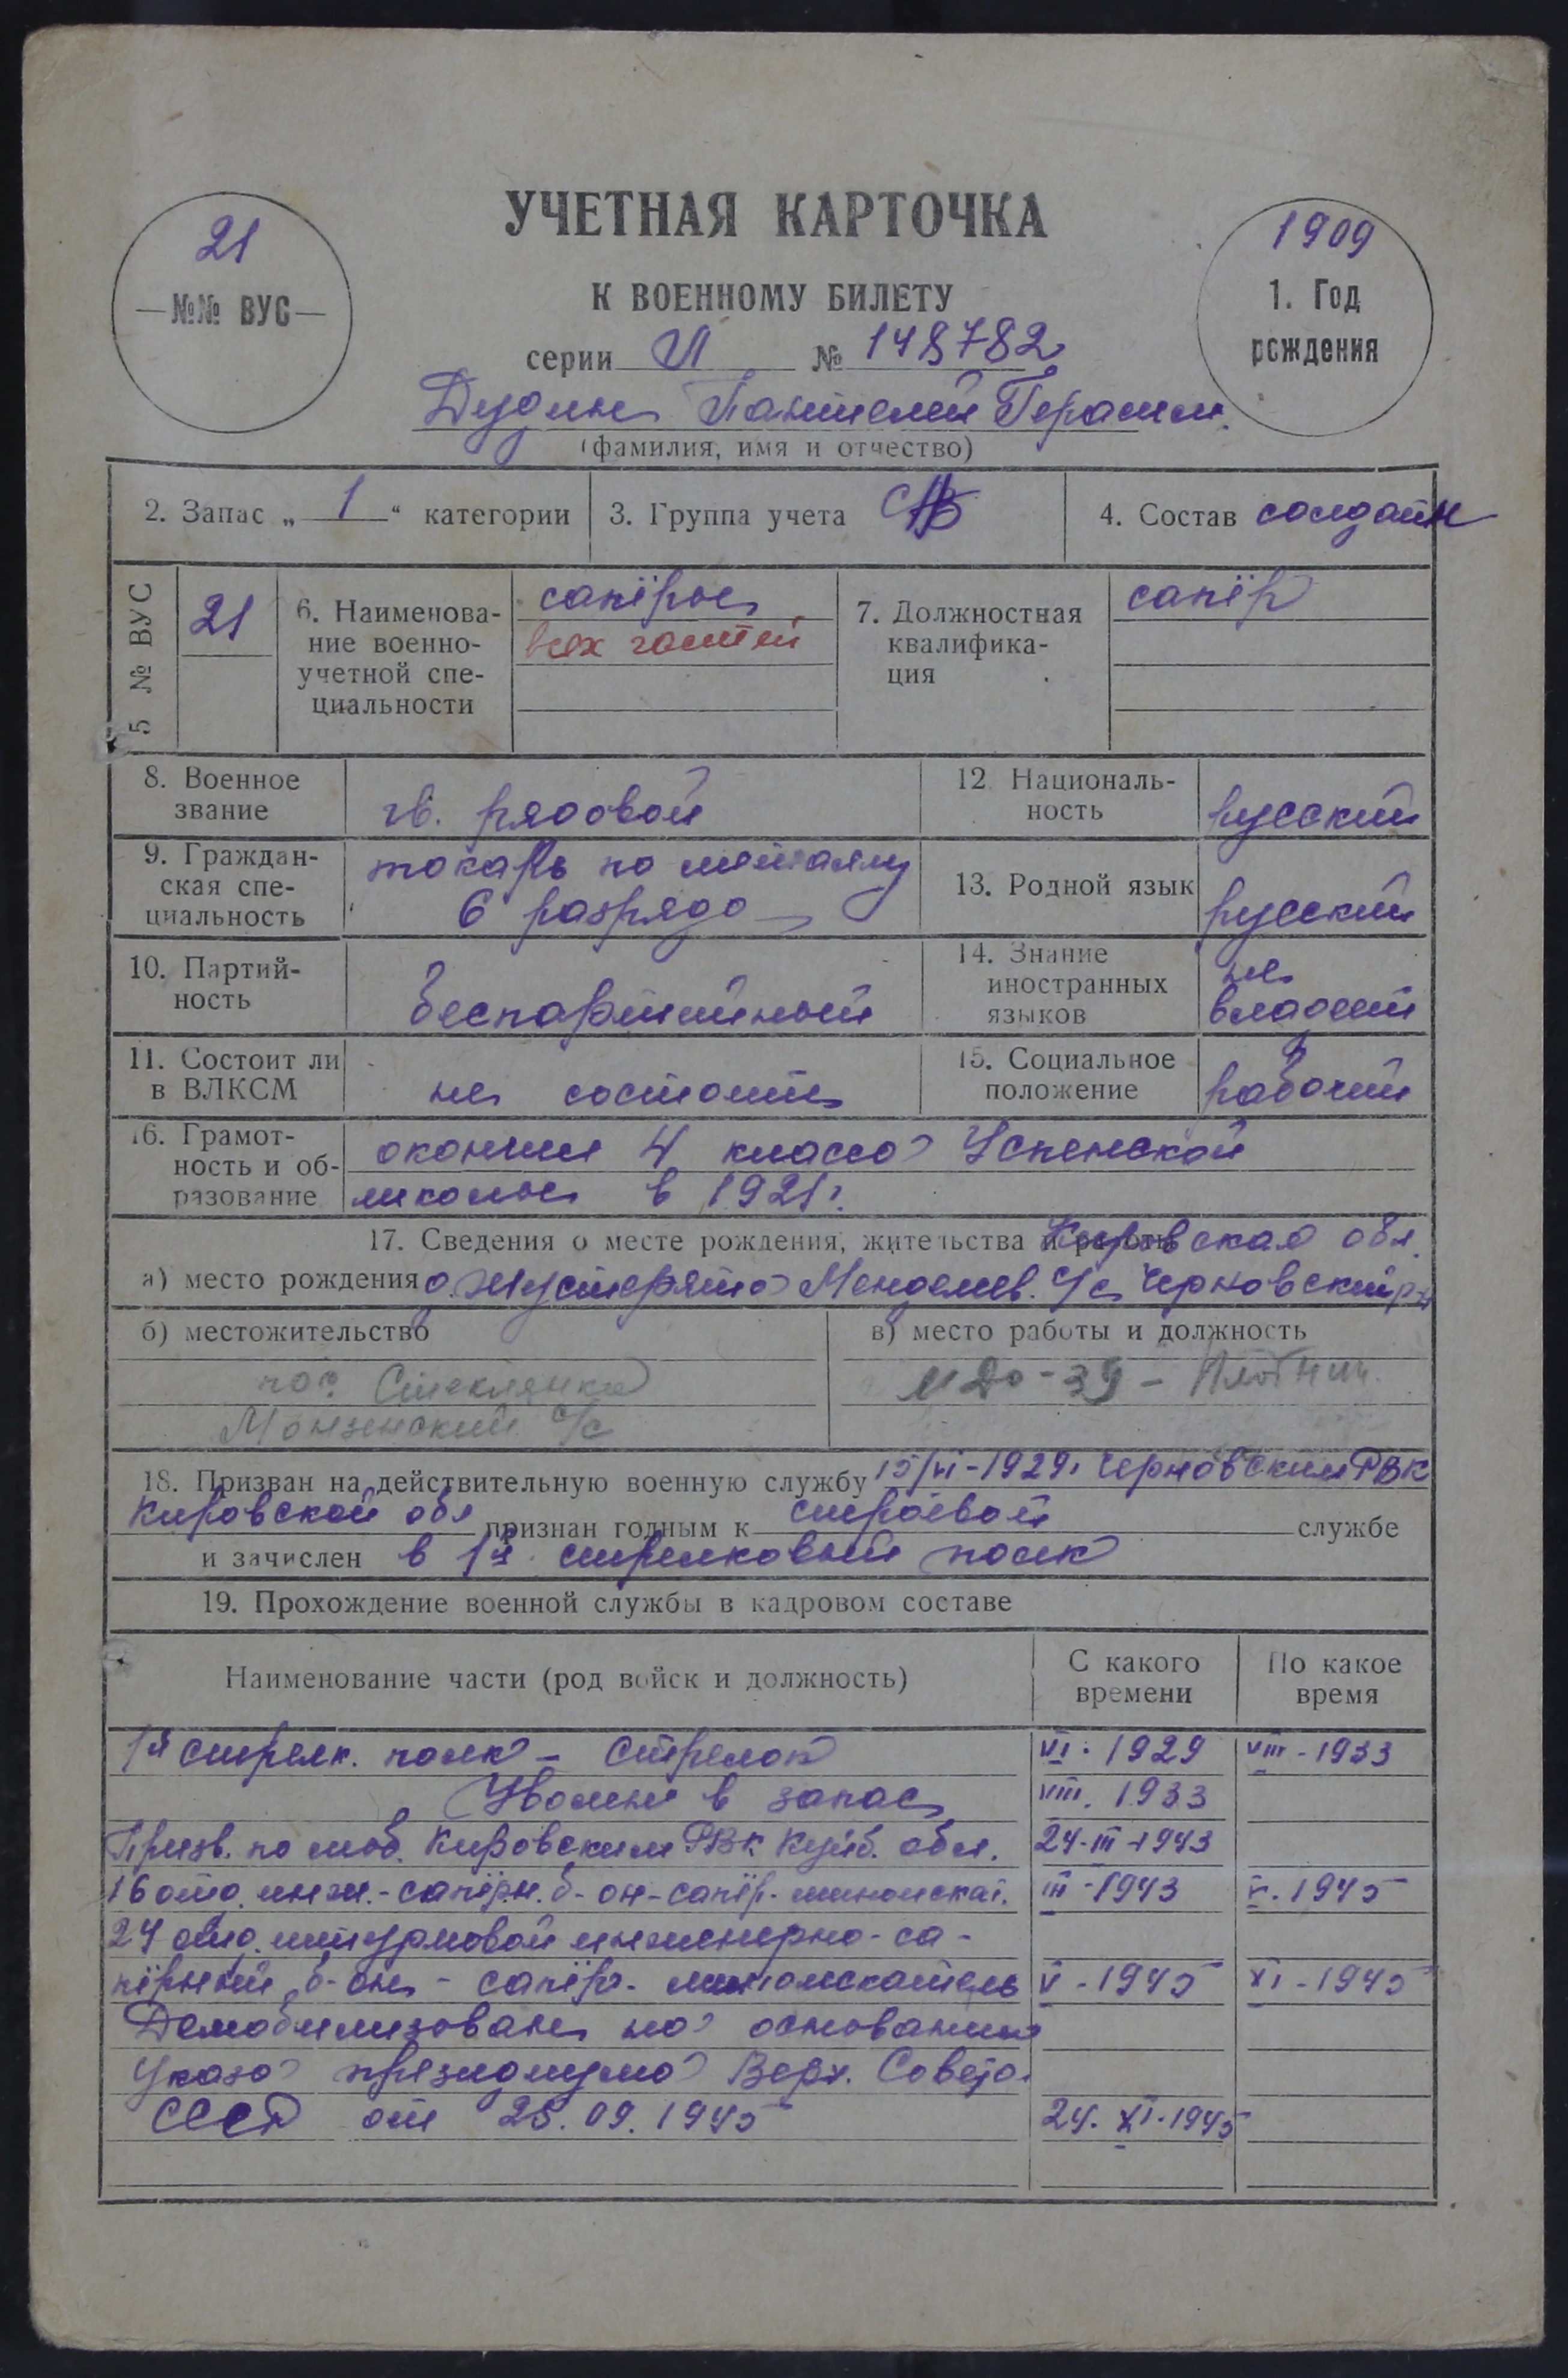 УЧЕТНАЯ КАРТОЧКА
К ВОЕННОМУ БИЛЕТУ
21
—№№ ВУС—
1909
1. Год
рождения
серии № 148782
Дудин Пантелей Герасим.
(фамилия, имя и отчество)
2. Запас „ 1 “ категории
3. Группа учета
4. Состав солдатск
5 № ВУС
21
6. Наименова-
ние военно-
учетной спе-
циальности
сапёры
всех частей
7. Должностная
квалифика-
ция
сапёр
8. Военное
звание
гв. рядовой
12. Националь-
ность
русский
9. Граждан-
ская спе-
циальность
токарь по металлу
6 разряда
13. Родной язык
русский
10. Партий-
ность
беспартийный
14. Знание
иностранных
языков
не
владеет
11. Состоит ли
в ВЛКСМ
не состоит
15. Социальное
положение
рабочий
16. Грамот-
ность и об-
разование
окончил 4 класса Успенской
школы в 1921г.
17. Сведения о месте рождения, жительства и работы
Кировская обл.
а) место рождения д. Менделеев. с/с Черновский р-н
б) местожительство
пос. Стеклянка
Монзенский с/с
в) место работы и должность
МДО-39 - Плотник.
18. Призван на действительную военную службу 15/VI-1929г Черновским РВК
Кировской обл признан годным к строевой службе
и зачислен в 1й стрелковый полк
19. Прохождение военной службы в кадровом составе
Наименование части (род войск и должность)
С какого
времени
По какое
время
1й стрелк. полк - Стрелок VI. 1929 VIII - 1933
Уволен в запас VIII. 1933
Призв. по моб. Кировским РВК Куйб. обл. 24-III-1943
16 отд. инж.-сапёрн. б-он-сапёр-миноискат. III-1943 V. 1945
24 отд. штурмовой инженерно-са-
пёрный б-он - сапёр-миноискатель V - 1945 XI - 1945
Демобилизован на основании
Указа президиума Верх. Совета
СССР от 25.09.1945 24. XI. 1945